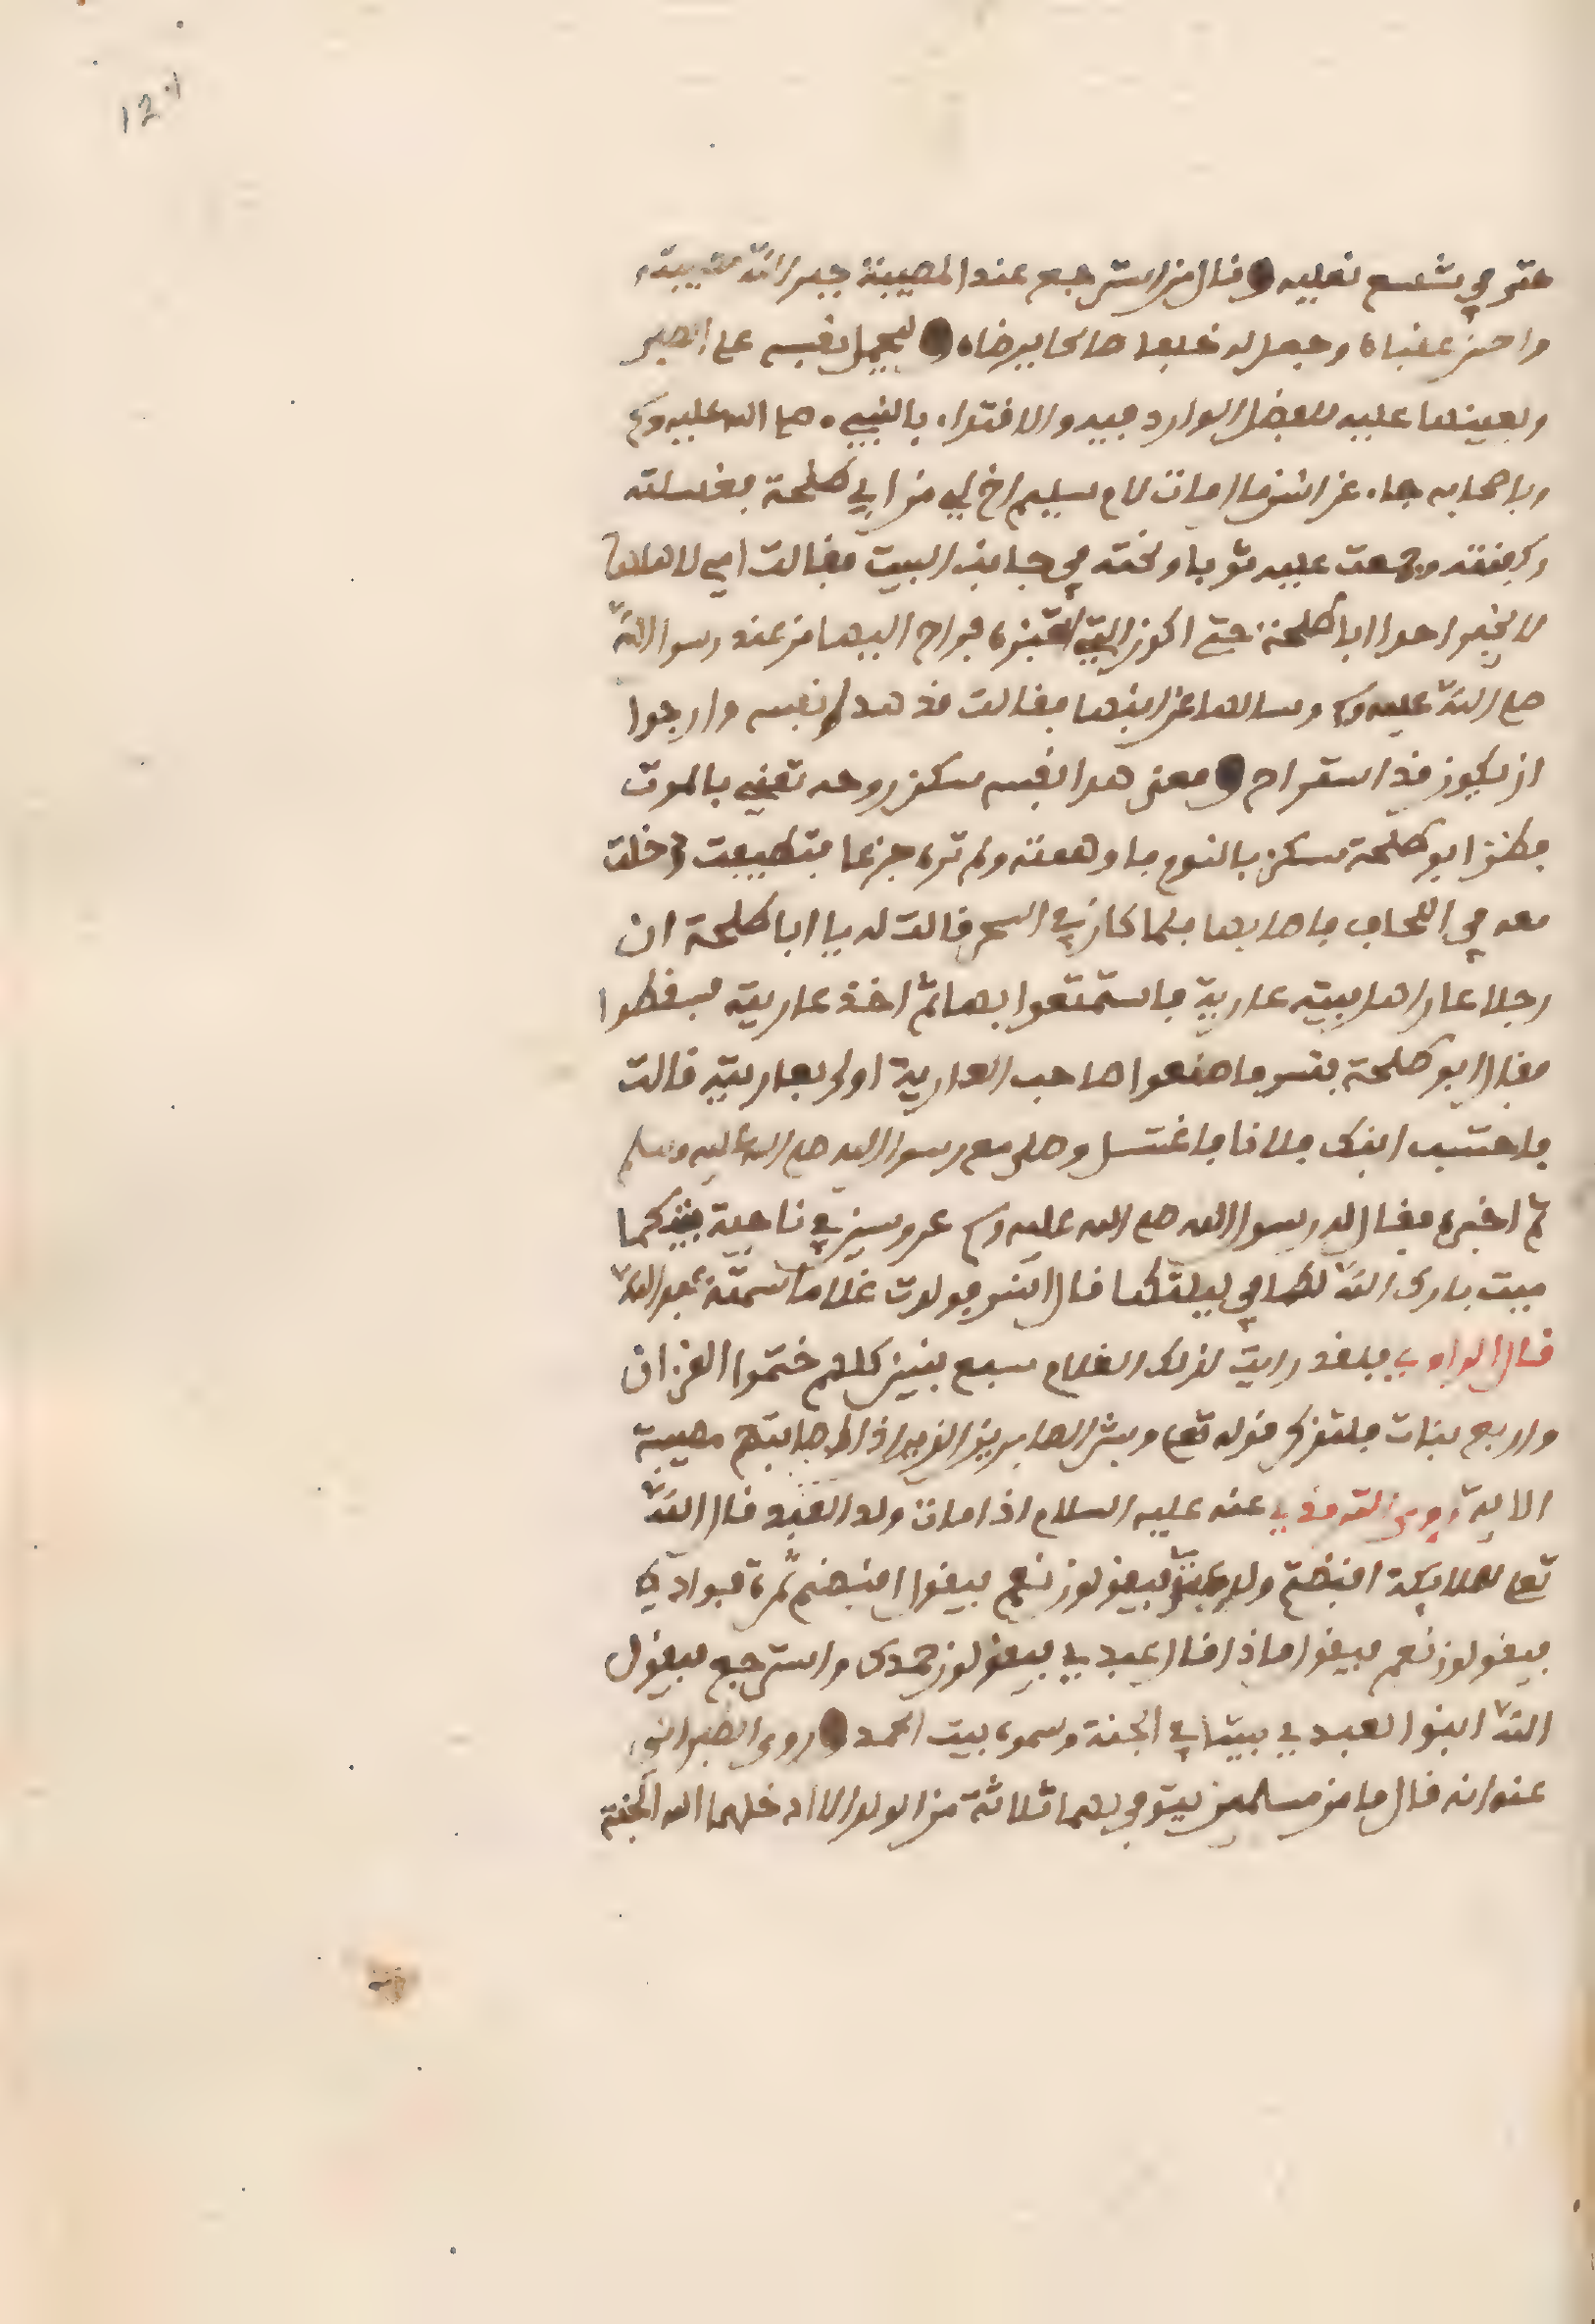 121
حتى في شسع نعليه وقال من استرجع عند المصيبة جبر الله مصيبته
واحسن عقباه وجعل له خلفا صالحا يرضاه ليحمل نفسه على الصبر
ويعينها عليه للفضل الوارد فيه والاقتداء بالنبيء صلى الله عليه وسلم
وباصحابه جاء عن انس قال مات لام سليم اخ لي من ابي طلحة فغسلته
وكفنته وجمعت عليه ثوبا ونحته في جانب البيت فقالت امي لاهلها
لا يخبر احد ابا طلحة حتى اكون التي اخبره فراح اليها من عند رسول الله
صلى الله عليه وسلم وسالها عن ابنها فقالت قد هدا نفسه وارجوا
ان يكون قد استراح ومعنى هدا نفسه سكن روحه تعني بالموت
فظن ابو طلحة سكن بالنوم ما وهمته ولم تره جزعا فتطيبت ودخلت
معه في اللحاف فاصابها فلما كان في السحر قالت له يا ابا طلحة ان
رجلا عار اهل بيته عارية فاستمتعوا بها ثم اخذ عاريته فسخطوا
فقال ابو طلحة بئس ما صنعوا صاحب العارية اولى بعاريته قالت
فاحتسب ابنك فلانا فاغتسل وصلى مع رسول الله صلى الله عليه وسلم
ثم اخبره فقال له رسول الله صلى الله عليه وسلم عروسين في ناحية بيتكما
ميت بارك الله لكما في ليلتكما قال انس فولدت غلاما سمته عبد الله
قال الراوي فلقد رايت لذلك الغلام سبع بنين كلهم ختموا القران
واربع بنات فلتذكر قوله تعلى وبشر الصابرين الذين اذا اصابتهم مصيبة
الاية روى الترمذي عنه عليه السلام اذا مات ولد العبد قال الله
تعلى لملائكة اقبضتم ولد عبدي فيقولون نعم فيقول اقبضتم ثمرة فوادي
فيقولون نعم فيقول ماذا قال عبدي فيقولون حمدك واسترجع فيقول
الله ابنوا لعبدي بيتا في الجنة وسموه بيت الحمد وروى الطبراني
عنه انه قال ما من مسلمين يتوفى لهما ثلاثة من الولد الا ادخلهما الله الجنة